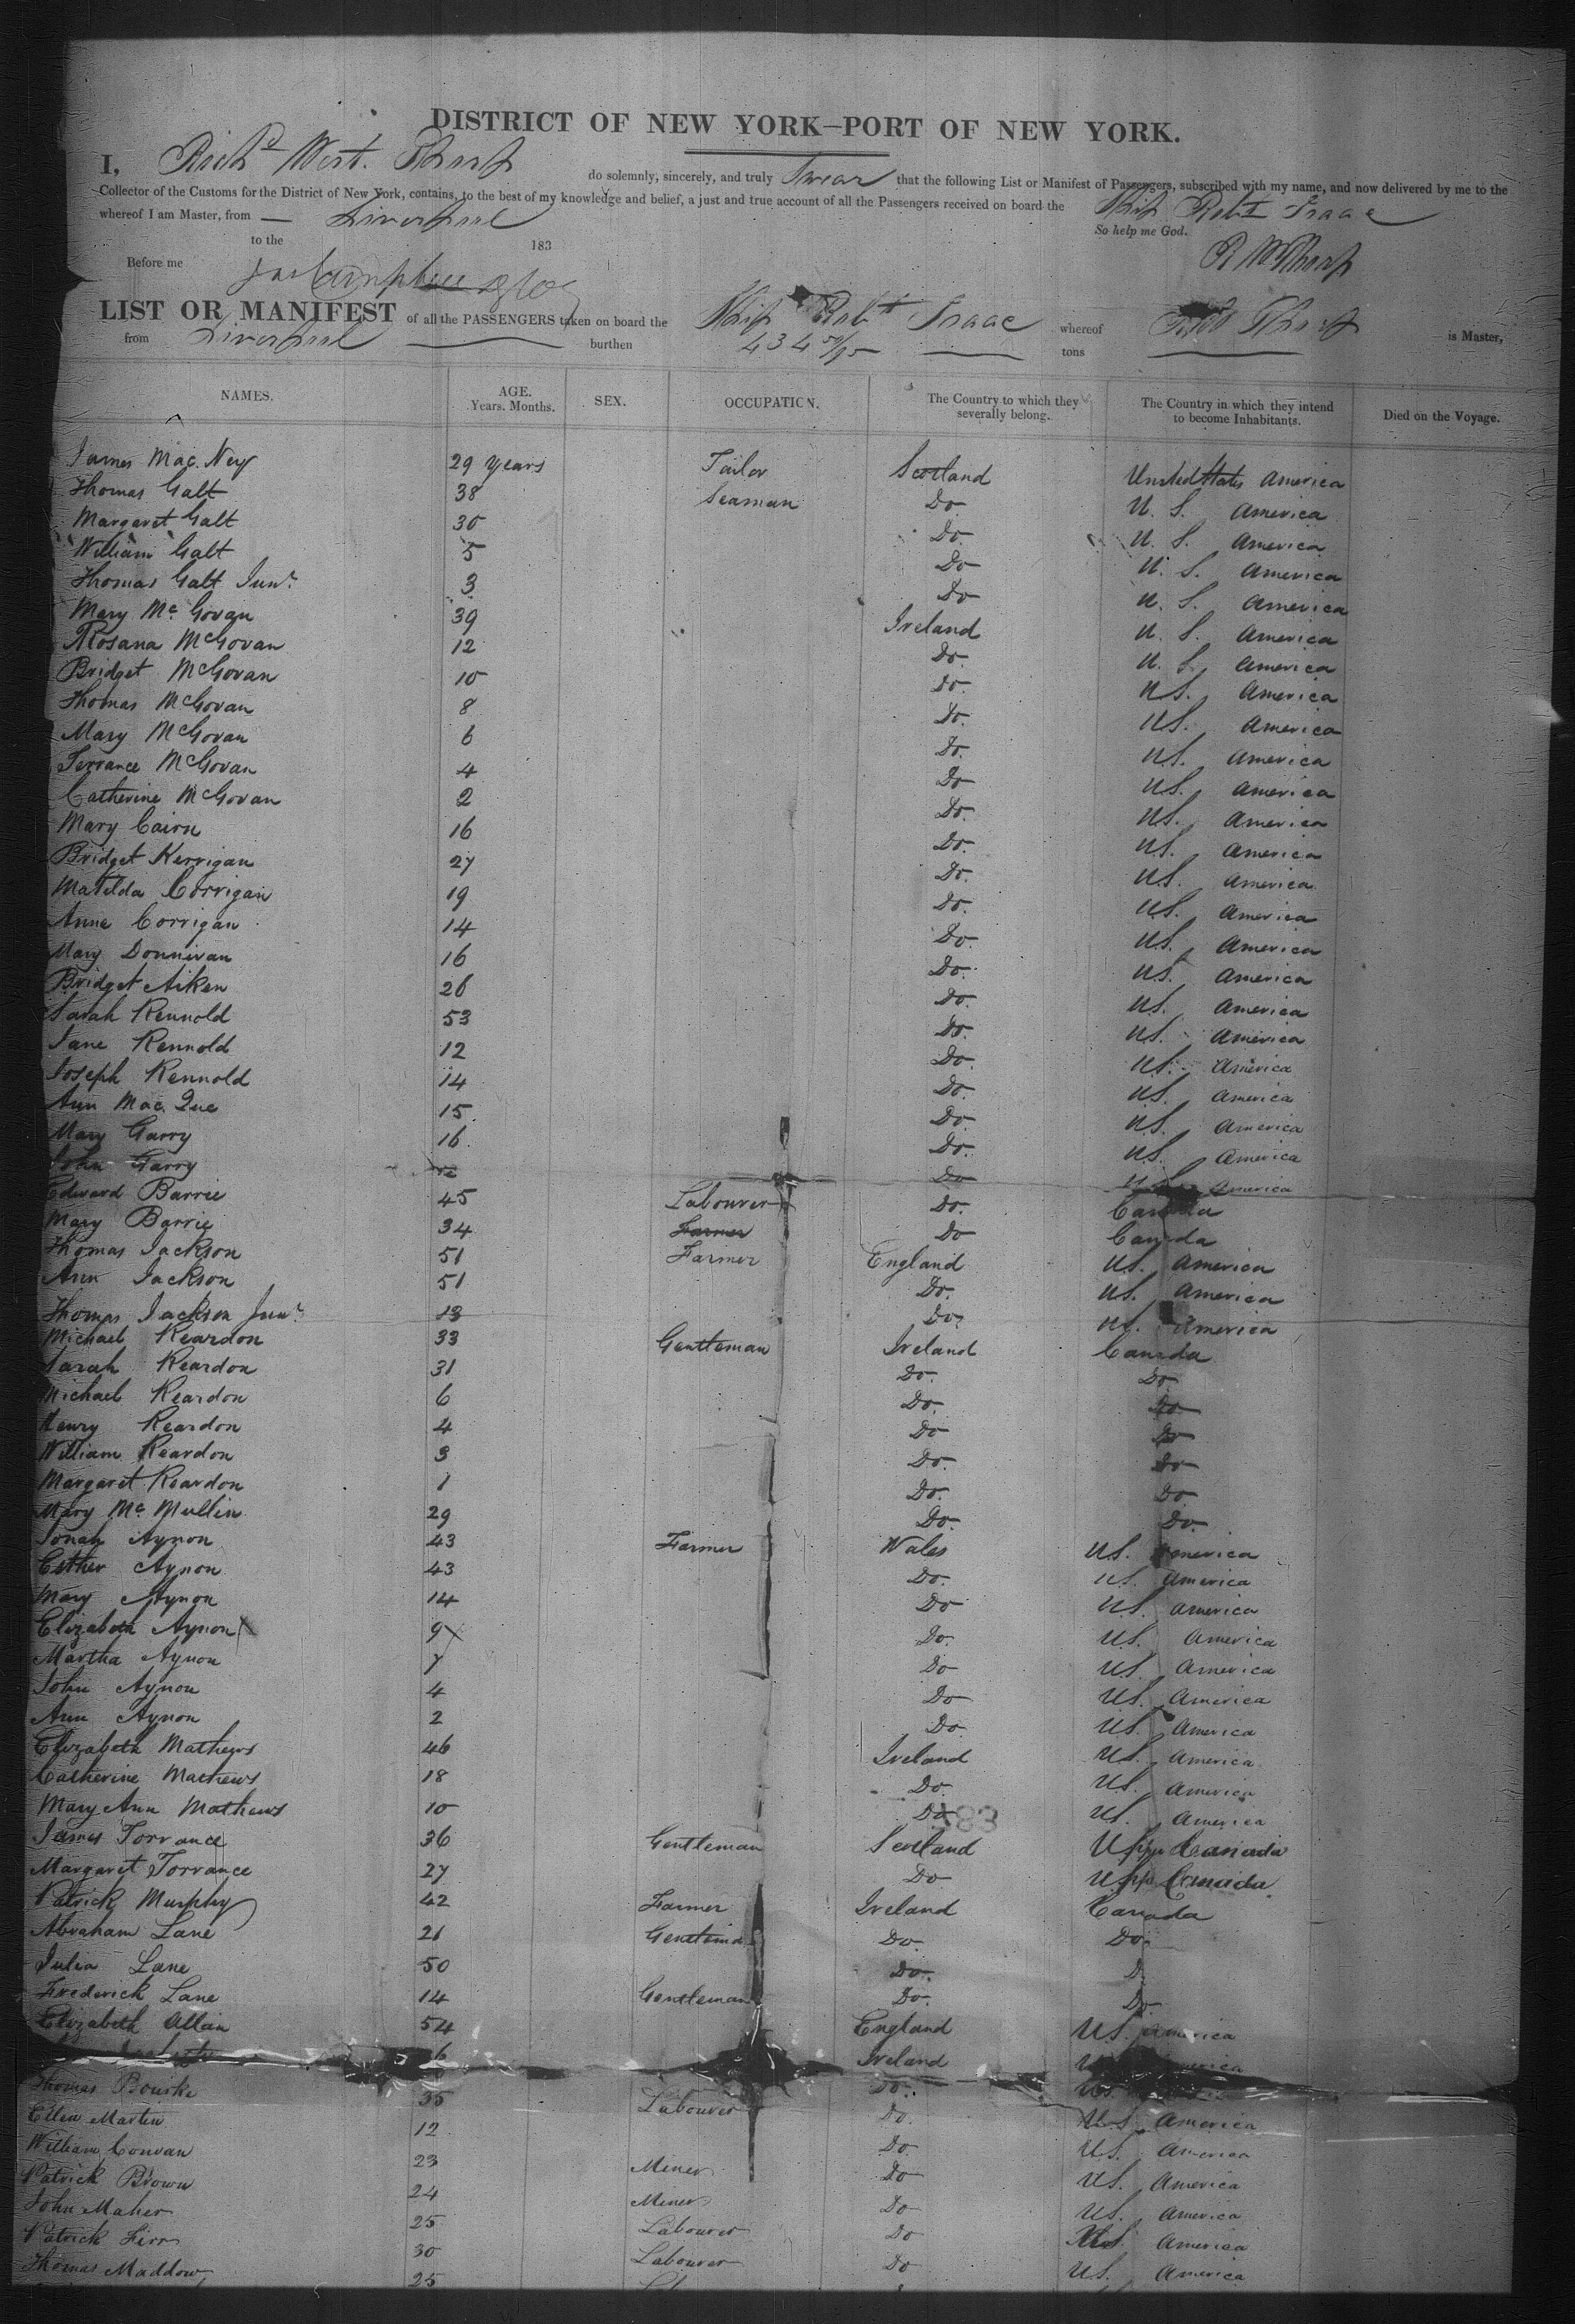 DISTRICT OF NEW YORK—PORT OF NEW YORK.
I, Richd West. Sharp do solemnly, sincerely, and truly Swear that the following List or Manifest of Passengers, subscribed with my name, and now delivered by me to the
Collector of the Customs for the District of New York, contains, to the best of my knowledge and belief, a just and true account of all the Passengers received on board the Ship Robt Isaac
whereof I am Master, from — Liverpool
So help me God.
to the 183
R W Sharp
Before me
LIST OR MANIFEST of all the PASSENGERS taken on board the Ship Robt Isaac whereof Sharp is Master,
from Liverpool burthen 434 50/95 tons
NAMES. AGE. Years. Months. SEX. OCCUPATION. The Country to which they severally belong. The Country in which they intend to become Inhabitants. Died on the Voyage.
James Mac. Ney 29 years Tailor Scotland United States America
Thomas Galt 38 Seaman Do U. S. America
Margaret Galt 30 Do. U. S. America
William Galt 5 Do U. S. America
Thomas Galt Junr 3 Do U. S. America
Mary Mc Govan 39 Ireland U. S. America
Rosana McGovan 12 Do. U. S. America
Bridget McGovan 10 Do. US. America
Thomas McGovan 8 Do. US. America
Mary McGovan 6 Do. US. America
Terrance McGovan 4 Do US. America
Catherine McGovan 2 Do. US. America
Mary Cairn 16 Do. US. America
Bridget Kerrigan 27 Do. US. America
Matilda Corrigan 19 Do. US. America
Anne Corrigan 14 Do. US. America
Mary Donnivan 16 Do. US. America
Bridget Aiken 26 Do. US. America
Sarah Rennold 53 Do. US. America
Jane Rennold 12 Do. US. America
Joseph Rennold 14 Do. US. America
Ann Mac. Que 15 Do US. America
Mary Garry 16 Do. US. America
John Garry Do America
Edward Barrie 45 Labourer Do. Canada
Mary Barrie 34 Farmer Do Canada
Thomas Jackson 51 Farmer England US. America
Ann Jackson 51 Do. US. America
Thomas Jackson Junr 13 Do. US. America
Michael Reardon 33 Gentleman Ireland Canada
Sarah Reardon 31 Do. Do
Michael Reardon 6 Do. Do
Henry Reardon 4 Do Do
William Reardon 3 Do. Do
Margaret Reardon 1 Do. Do
Mary Mc Mullin 29 Do. Do.
Jonah Aynon 43 Farmer Wales US. America
Esther Aynon 43 Do. US. America
Mary Aynon 14 Do US. America
Elizabeth Aynon 9 Do. US. America
Martha Aynon 7 Do US. America
John Aynon 4 Do US. America
Ann Aynon 2 Do US. America
Elizabeth Mathews 46 Ireland US. America
Catherine Mathews 18 Do US. America
Mary Ann Mathews 10 Do US. America
183
James Torrance 36 Gentleman Scotland Upp. Canada
Margaret Torrance 27 Do Upp. Canada
Patrick Murphy 42 Farmer Ireland Canada
Abraham Lane 21 Gentleman Do. Do
Julia Lane 50 Do. D
Frederick Lane 14 Gentleman Do. Do
Elizabeth Allan 54 England US. America
6 Ireland America
Thomas Bourke 35 Labourer Do. US.
Ellen Martin 12 Do. US. America
William Convan 23 Miner Do US. America
Patrick Brown 24 Miner Do US. America
John Maher 25 Labourer Do US. America
Patrick Firr 30 Labourer Do US. America
Thomas Maddow 25 Do US. America